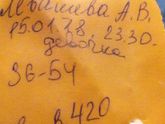 А.В.
15.01.78, 23.30.
девочка
36-54
в 420